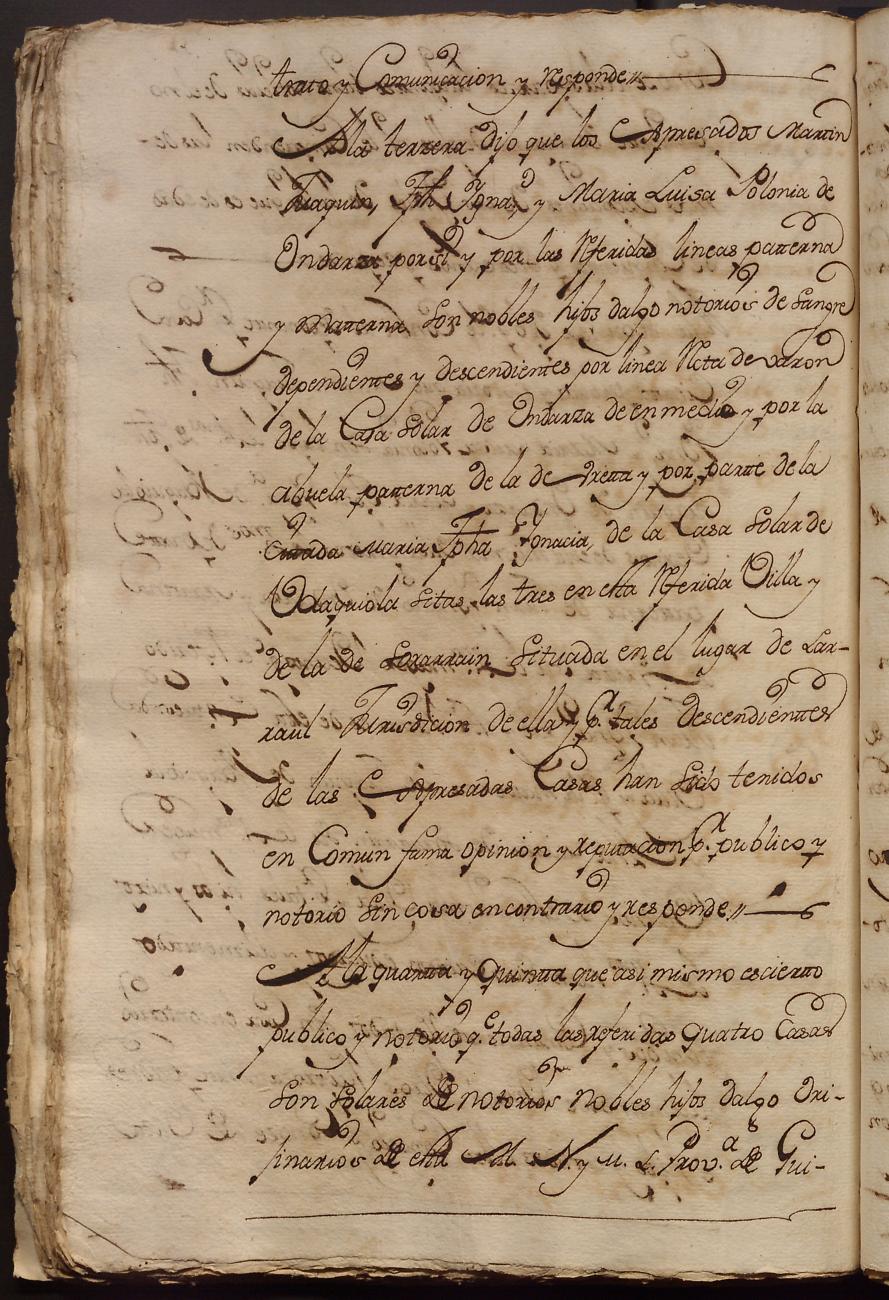 trato y Comunicacion y responde //
A la terzera dijo que los Expresados Martin
Juaquin, Jph Ygna.o y Maria Luisa Polonia de
Undarza por si y por las referidas lineas patterna
y matterna son nobles hijos dalgo notorios de sangre
dependientes y descendientes por linea recta de varon
de la Casa solar de Undarza de en medio y por la
abuela patterna de la de Yretta y por partte de la
Citada Maria Jpha Ygnacia, de la Casa solar de
Odaquiola sitas las tres en esta referida Villa y
de la de Sorarrain situada en el lugar de Lar-
raul Jurisdicion de ella y p.r tales descendienttes
de las Expresadas Casas han sido tenidos
en Comun fama opinion y reputacion p.r publico y
notorio sin cosa en contrario y responde //
A la quartta y Quintta que asi mismo es cierto
publico y notorio q.e todas las referidas quatro Casas
son solares de notorios nobles hijos dalgo Ori-
jinarios de esta M. N. y M. L. Prov.a de Gui-